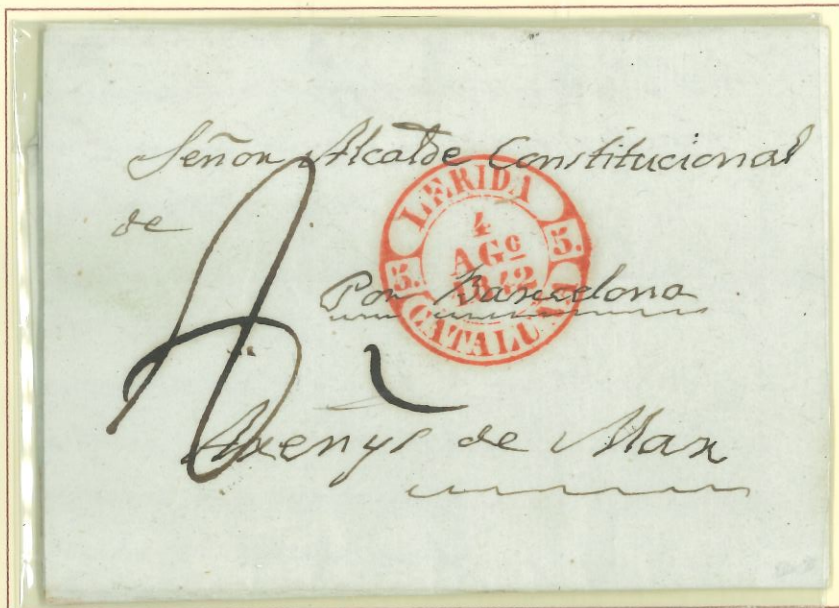 Señor Alcalde Constitucional
de
LERIDA
5. 5.
4
AGº
1842
CATALUÑA
Por Barcelona
Arenys de Mar